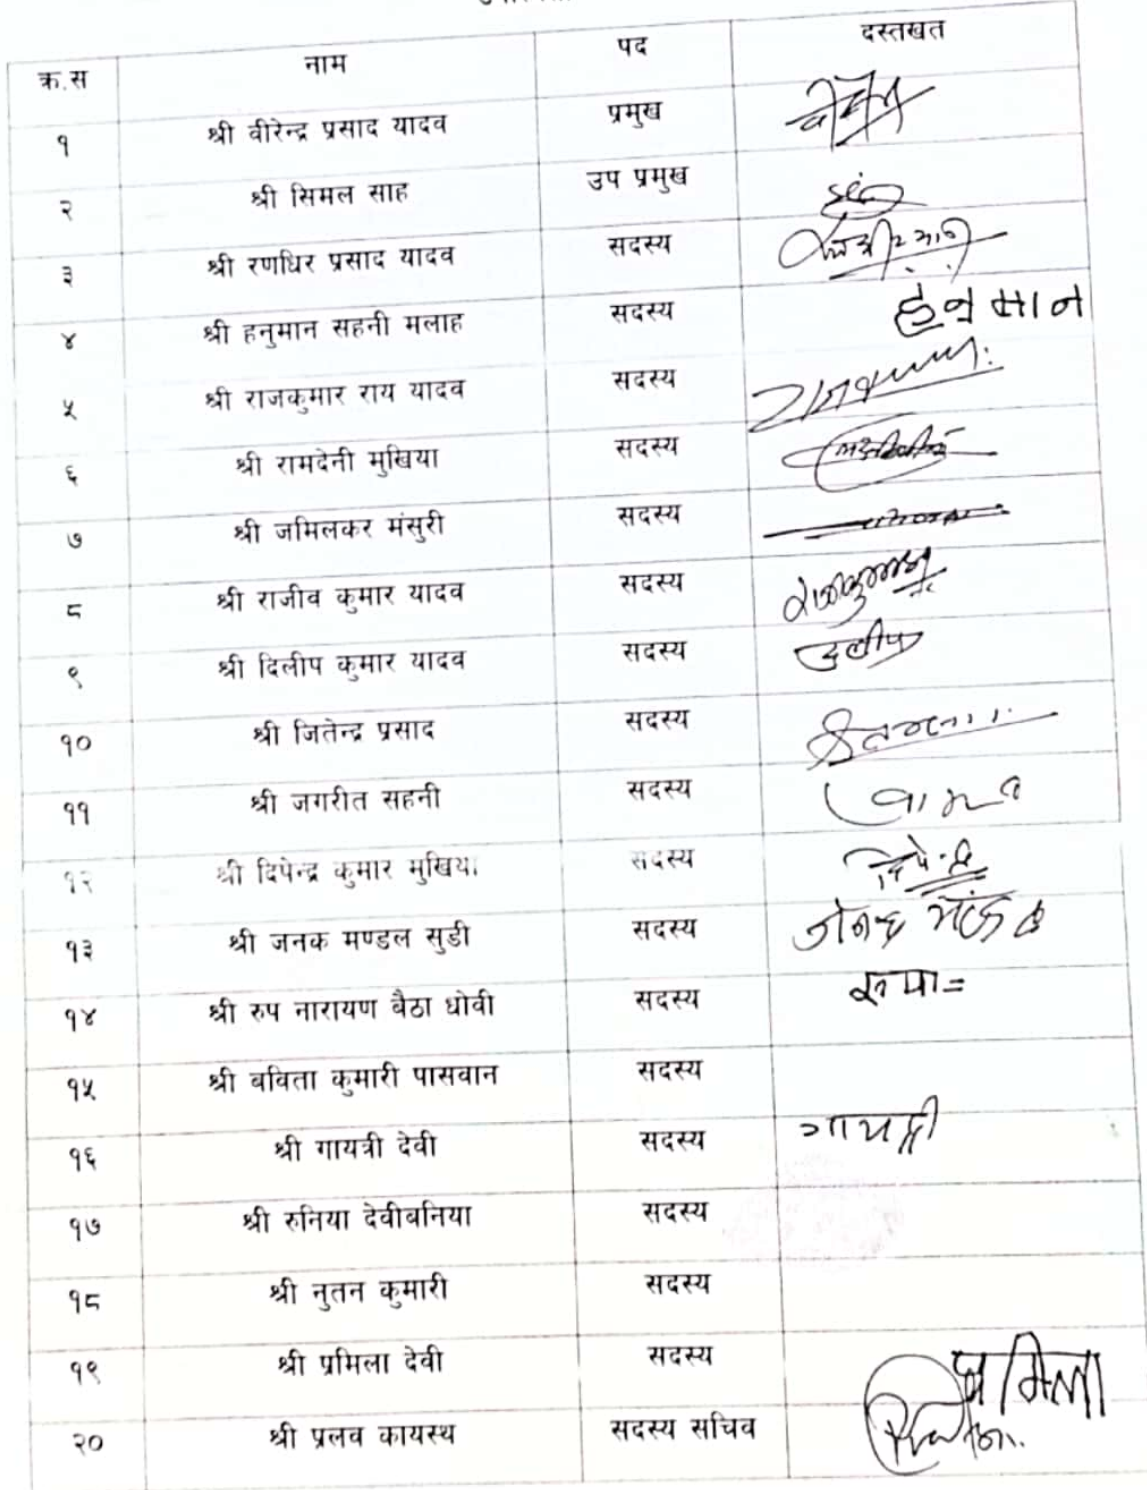 क्र.स नाम पद दस्तखत
१ श्री वीरेन्द्र प्रसाद यादव प्रमुख
२ श्री सिमल साह उप प्रमुख
३ श्री रणधिर प्रसाद यादव सदस्य
४ श्री हनुमान सहनी मलाह सदस्य हनुमान
५ श्री राजकुमार राय यादव सदस्य
६ श्री रामदेनी मुखिया सदस्य
७ श्री जमिलकर मंसुरी सदस्य
८ श्री राजीव कुमार यादव सदस्य
९ श्री दिलीप कुमार यादव सदस्य
१० श्री जितेन्द्र प्रसाद सदस्य
११ श्री जगरीत सहनी सदस्य
१२ श्री दिपेन्द्र कुमार मुखिया सदस्य
१३ श्री जनक मण्डल सुडी सदस्य
१४ श्री रुप नारायण बैठा धोवी सदस्य
१५ श्री वविता कुमारी पासवान सदस्य
१६ श्री गायत्री देवी सदस्य गायत्री
१७ श्री रुनिया देवीबनिया सदस्य
१८ श्री नुतन कुमारी सदस्य
१९ श्री प्रमिला देवी सदस्य प्रमिला
२० श्री प्रलव कायस्थ सदस्य सचिव